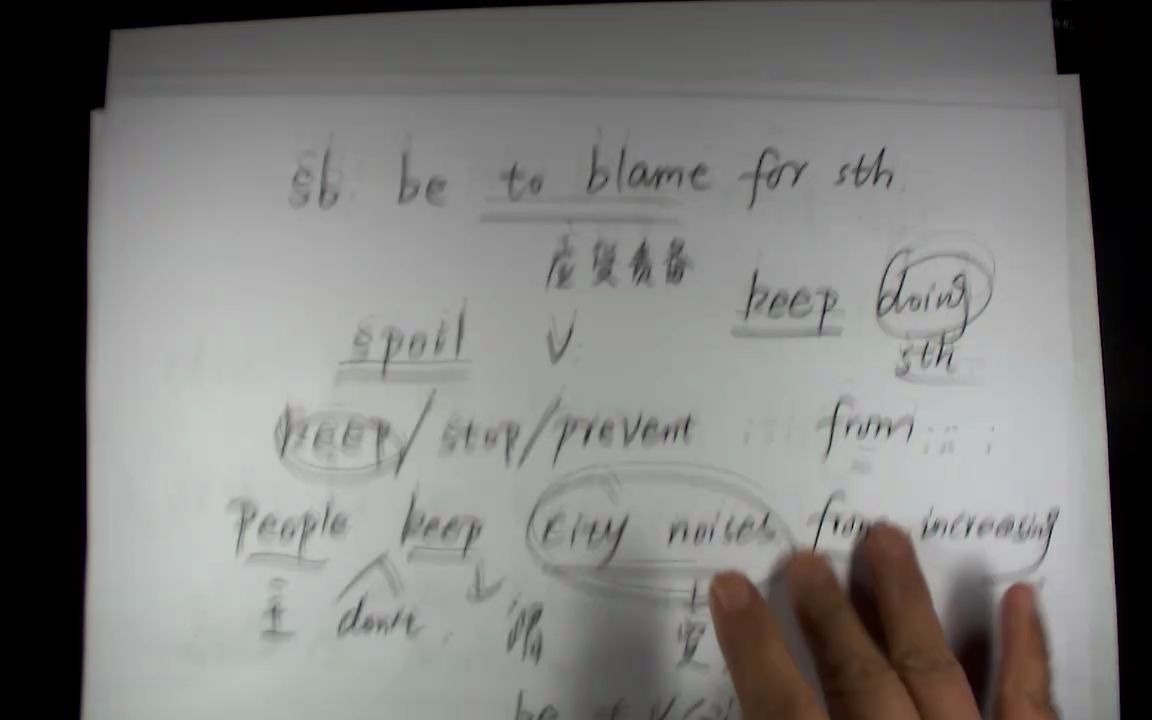 sb. be to blame for sth.
应受责备
keep doing
sth
spoil V.
keep/stop/prevent ... from ...
People keep city noises from increasing
主 don't 谓 宾
be +